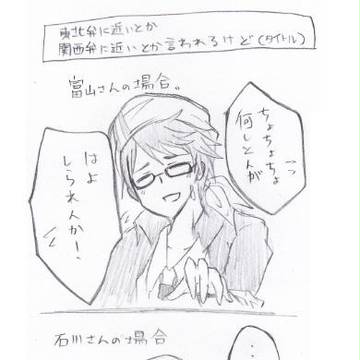 東北弁に近いとか
関西弁に近いとか言われるけど(タイトル)
富山さんの場合。
ちょちょちょ
何しとんが
はよ
しられんか!
石川さんの場合